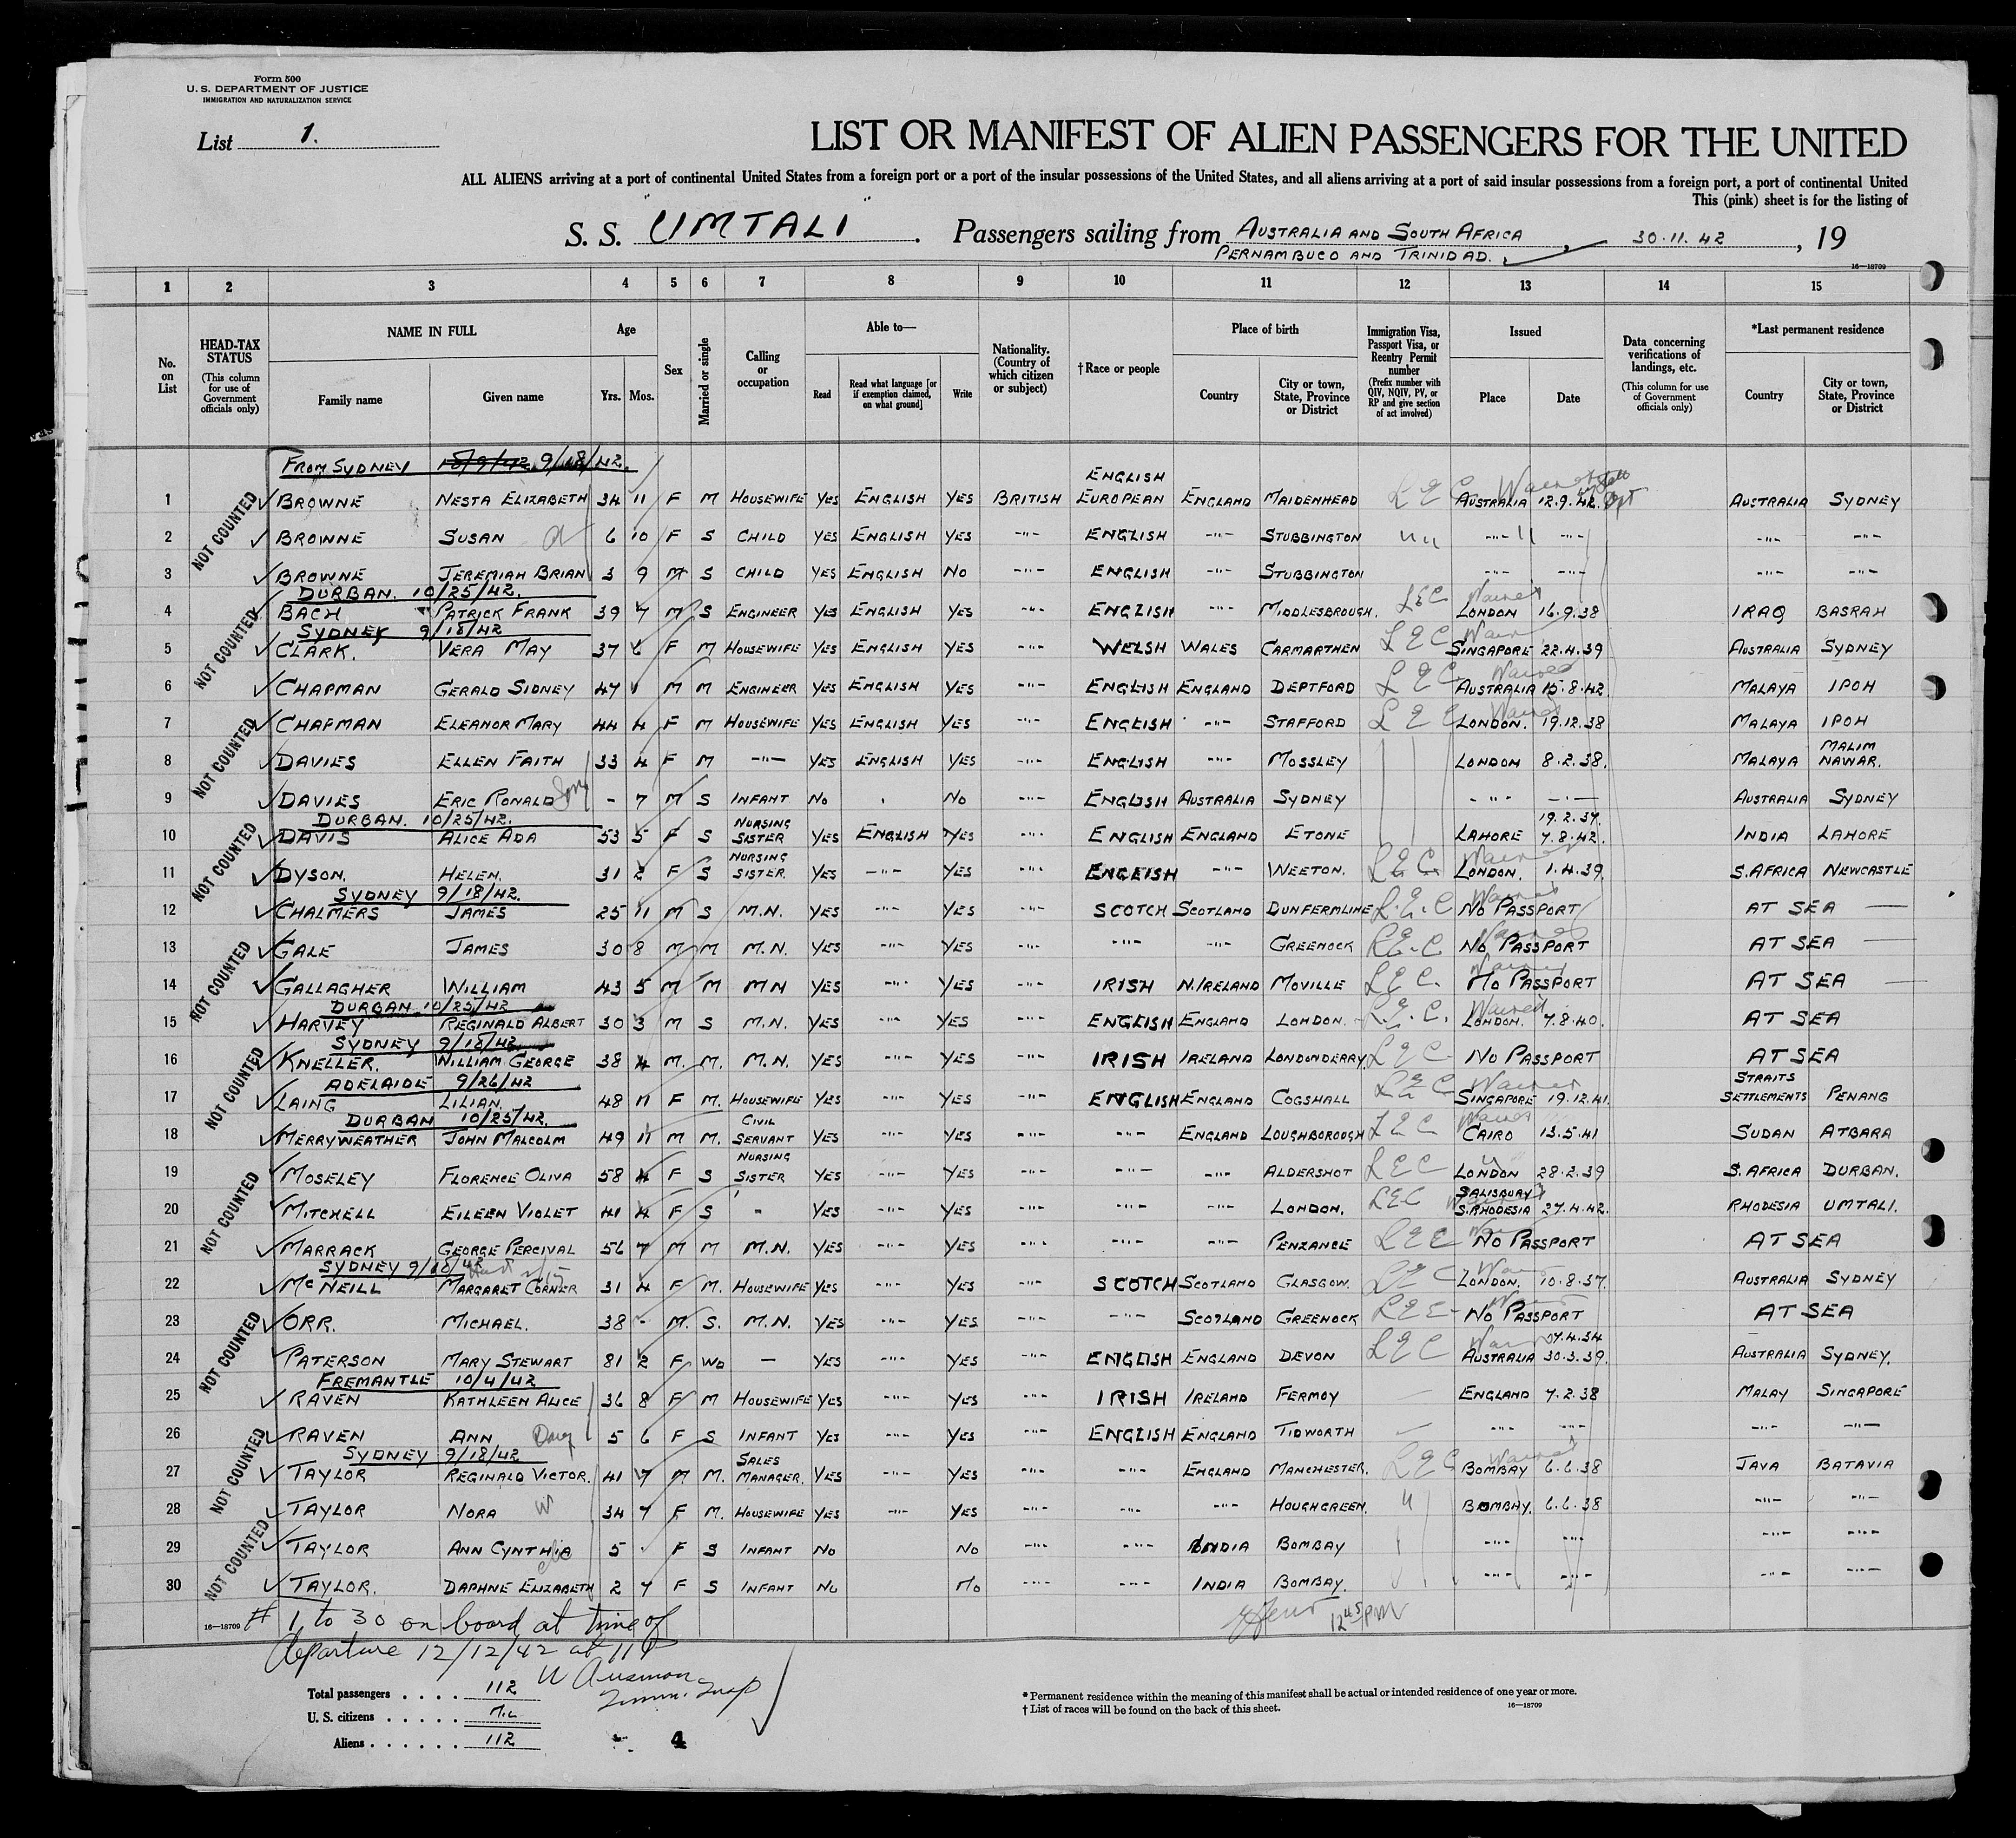 Form 500
U. S. DEPARTMENT OF JUSTICE
IMMIGRATION AND NATURALIZATION SERVICE
List 1.
LIST OR MANIFEST OF ALIEN PASSENGERS FOR THE UNITED
ALL ALIENS arriving at a port of continental United States from a foreign port or a port of the insular possessions of the United States, and all aliens arriving at a port of said insular possessions from a foreign port, a port of continental United
This (pink) sheet is for the listing of
S. S. "UMTALI" . Passengers sailing from AUSTRALIA AND SOUTH AFRICA , 30.11.42 , 19
PERNAMBUCO AND TRINIDAD.
16—18709
1 2 3 4 5 6 7 8 9 10 11 12 13 14 15
No. on List
HEAD-TAX STATUS (This column for use of Government officials only)
NAME IN FULL Family name Given name
Age Yrs. Mos.
Sex
Married or single
Calling or occupation
Able to— Read Read what language [or if exemption claimed, on what ground] Write
Nationality. (Country of which citizen or subject)
†Race or people
Place of birth Country City or town, State, Province or District
Immigration Visa, Passport Visa, or Reentry Permit number (Prefix number with QIV, NQIV, PV, or RP and give section of act involved)
Issued Place Date
Data concerning verifications of landings, etc. (This column for use of Government officials only)
*Last permanent residence Country City or town, State, Province or District
FROM SYDNEY 9/18/42.
1 NOT COUNTED BROWNE NESTA ELIZABETH 34 11 F M HOUSEWIFE YES ENGLISH YES BRITISH ENGLISH EUROPEAN ENGLAND MAIDENHEAD LEC Waived AUSTRALIA 12.9.42. AUSTRALIA SYDNEY
2 BROWNE SUSAN d 6 10 F S CHILD YES ENGLISH YES -"- ENGLISH -"- STUBBINGTON " " -"- -"- -"- -"-
3 BROWNE JEREMIAH BRIAN 3 9 M S CHILD YES ENGLISH NO -"- ENGLISH -"- STUBBINGTON -"- -"- -"- -"-
DURBAN. 10/25/42.
4 NOT COUNTED BACH PATRICK FRANK 39 7 M S ENGINEER YES ENGLISH YES -"- ENGLISH -"- MIDDLESBROUGH. LEC Waived LONDON 16.9.38 IRAQ BASRAH
SYDNEY 9/18/42
5 CLARK. VERA MAY 37 6 F M HOUSEWIFE YES ENGLISH YES -"- WELSH WALES CARMARTHEN LEC SINGAPORE 22.4.39 AUSTRALIA SYDNEY
6 CHAPMAN GERALD SIDNEY 47 1 M M ENGINEER YES ENGLISH YES -"- ENGLISH ENGLAND DEPTFORD LEC Waived AUSTRALIA 15.8.42. MALAYA IPOH
7 NOT COUNTED CHAPMAN ELEANOR MARY 44 4 F M HOUSEWIFE YES ENGLISH YES -"- ENGLISH -"- STAFFORD LEC Waived LONDON. 19.12.38 MALAYA IPOH
8 DAVIES ELLEN FAITH 33 4 F M -"- YES ENGLISH YES -"- ENGLISH -"- MOSSLEY LONDON 8.2.38. MALAYA MALIM NAWAR.
9 DAVIES ERIC RONALD Son - 7 M S INFANT NO . NO -"- ENGLISH AUSTRALIA SYDNEY -"- -"- AUSTRALIA SYDNEY
DURBAN. 10/25/42.
10 NOT COUNTED DAVIS ALICE ADA 53 5 F S NURSING SISTER YES ENGLISH YES -"- ENGLISH ENGLAND ETONE LAHORE 19.2.37. 7.8.42. INDIA LAHORE
11 DYSON. HELEN. 31 2 F S NURSING SISTER. YES -"- YES -"- ENGLISH -"- WEETON. LEC. Waived LONDON. 1.4.39. S.AFRICA NEWCASTLE
SYDNEY 9/18/42.
12 CHALMERS JAMES 25 11 M S M.N. YES -"- YES -"- SCOTCH SCOTLAND DUNFERMLINE L.E.C Waived NO PASSPORT AT SEA —
13 NOT COUNTED GALE JAMES 30 8 M M M.N. YES -"- YES -"- -"- -"- GREENOCK LE.C Waived NO PASSPORT AT SEA —
14 GALLAGHER WILLIAM 43 5 M M MN YES -"- YES -"- IRISH N.IRELAND MOVILLE LEC. Waived NO PASSPORT AT SEA —
DURBAN. 10/25/42
15 HARVEY REGINALD ALBERT 30 3 M S M.N. YES -"- YES -"- ENGLISH ENGLAND LONDON. L.E.C. Waived LONDON. 7.8.40. AT SEA
SYDNEY 9/18/42
16 NOT COUNTED KNELLER. WILLIAM GEORGE 38 4 M. M. M.N. YES -"- YES -"- IRISH IRELAND LONDONDERRY LEC NO PASSPORT AT SEA
ADELAIDE 9/26/42
17 LAING LILIAN. 48 11 F M. HOUSEWIFE YES -"- YES -"- ENGLISH ENGLAND COGSHALL LEC Waived SINGAPORE 19.12.41. STRAITS SETTLEMENTS PENANG
DURBAN 10/25/42.
18 MERRYWEATHER JOHN MALCOLM 49 11 M M. CIVIL SERVANT YES -"- YES -"- -"- ENGLAND LOUGHBOROUGH LEC Waived CAIRO 13.5.41 SUDAN ATBARA
19 MOSELEY FLORENCE OLIVA 58 4 F S NURSING SISTER YES -"- YES -"- -"- -"- ALDERSHOT LEC LONDON 28.2.39 S.AFRICA DURBAN.
20 NOT COUNTED MITCHELL EILEEN VIOLET 41 4 F S - YES -"- YES -"- -"- -"- LONDON. LEC SALISBURY S.RHODESIA 27.4.42. RHODESIA UMTALI.
21 MARRACK GEORGE PERCIVAL 56 7 M M M.N. YES -"- YES -"- -"- -"- PENZANCE LEC NO PASSPORT AT SEA
SYDNEY 9/18/42
22 McNEILL MARGARET CORNER 31 4 F M. HOUSEWIFE YES -"- YES -"- SCOTCH SCOTLAND GLASGOW. LEC LONDON. 10.8.37. AUSTRALIA SYDNEY
23 NOT COUNTED ORR. MICHAEL. 38 - M. S. M.N. YES -"- YES -"- -"- SCOTLAND GREENOCK LEC NO PASSPORT AT SEA
24 PATERSON MARY STEWART 81 2 F WD — YES -"- YES -"- ENGLISH ENGLAND DEVON LEC AUSTRALIA 30.3.39. AUSTRALIA SYDNEY.
FREMANTLE 10/4/42
25 RAVEN KATHLEEN ALICE 36 8 F M HOUSEWIFE YES -"- YES -"- IRISH IRELAND FERMOY — ENGLAND 7.2.38 MALAY SINGAPORE
26 NOT COUNTED RAVEN ANN Daug 5 6 F S INFANT YES -"- YES -"- ENGLISH ENGLAND TIDWORTH — -"- -"- -"- -"-
SYDNEY 9/18/42
27 TAYLOR REGINALD VICTOR. 41 7 M M. SALES MANAGER. YES -"- YES -"- -"- ENGLAND MANCHESTER. LEC Waived BOMBAY 6.6.38 JAVA BATAVIA
28 TAYLOR NORA W 34 7 F M. HOUSEWIFE YES -"- YES -"- -"- -"- HOUGHGREEN. " BOMBAY. 6.6.38 -"- -"-
29 NOT COUNTED TAYLOR ANN CYNTHIA 5 - F S INFANT NO NO -"- -"- INDIA BOMBAY -"- -"- -"- -"-
30 TAYLOR. DAPHNE ELIZABETH 2 7 F S INFANT NO NO -"- -"- INDIA BOMBAY. -"- -"- -"- -"-
16—18709 # 1 to 30 on board at time of
departure 12/12/42 at 11
12 45 PM
Total passengers . . . . 112
U. S. citizens . . . . . NIL
Aliens . . . . . . 112
4
* Permanent residence within the meaning of this manifest shall be actual or intended residence of one year or more.
† List of races will be found on the back of this sheet.
16—18709